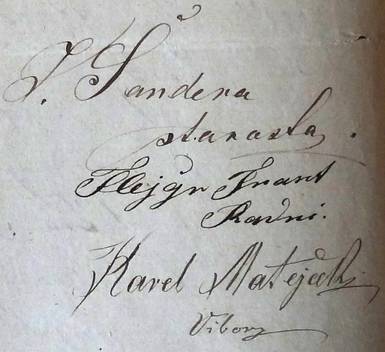 J. Šandera
starosta.
Flejgr Frant
Radní.
Karel Matějček
Výbor